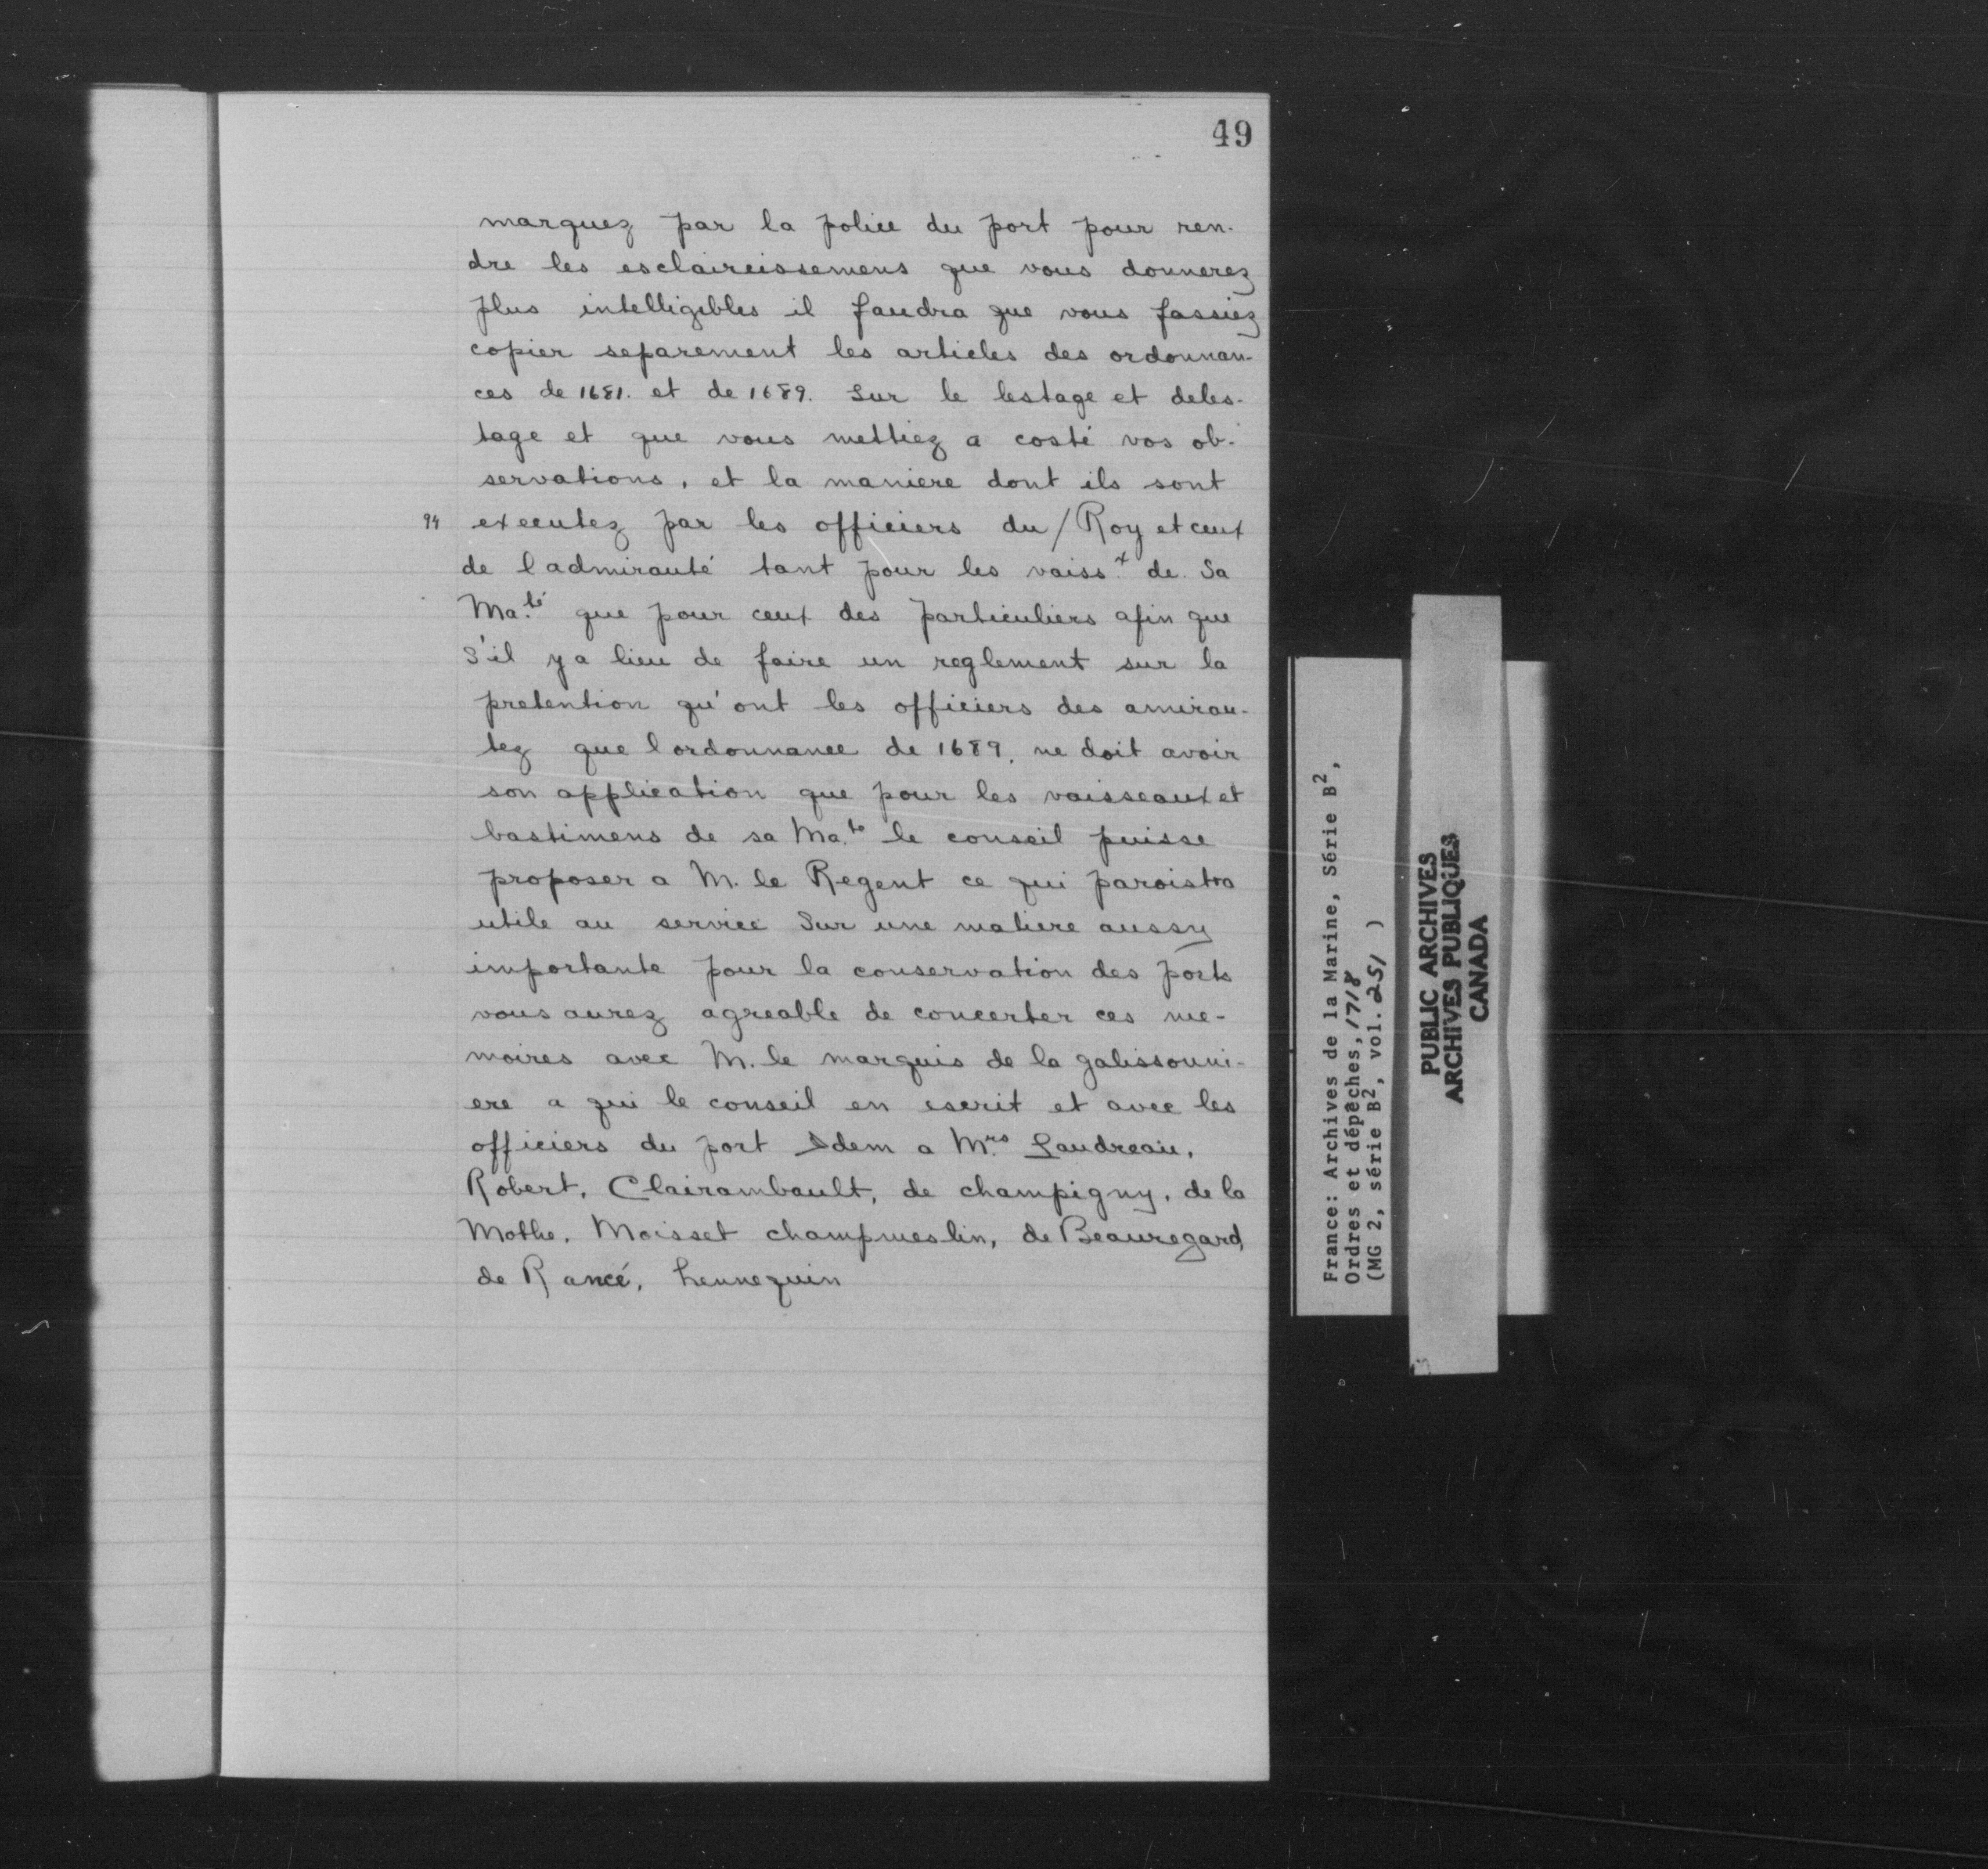 49
marquez par la police du port pour ren-
dre les esclaircissemens que vous donnerez
plus intelligibles il faudra que vous fassiez
copier separement les articles des ordonnan-
ces de 1681. et de 1689. Sur le lestage et deles-
tage et que vous mettiez a costé vos ob-
servations, et la maniere dont ils sont
94 executez par les officiers du / Roy et ceux
de l admirauté tant pour les vaiss.x de Sa
Ma.té que pour ceux des particuliers afin que
S'il y a lieu de faire un reglement sur la
pretention qu'ont les officiers des amirau-
tez que l ordonnance de 1689, ne doit avoir
son application que pour les vaisseaux et
bastimens de sa Ma.te le conseil puisse
proposer a M. le Regent ce qui paroistra
utile au service Sur une matiere aussy
importante pour la conservation des ports
vous aurez agreable de concerter ces me-
moires avec M. le marquis de la galissonni-
ere a qui le conseil en escrit et avec les
officiers du port Idem a M.rs Landreau,
Robert, Clairambault, de champigny, de la
Mothe, Moisset champmeslin, de Beauregard,
de Rancé, hennequin
France: Archives de la Marine, Série B2,
Ordres et dépêches, 1718
(MG 2, série B2, vol. 251 )
PUBLIC ARCHIVES
ARCHIVES PUBLIQUES
CANADA